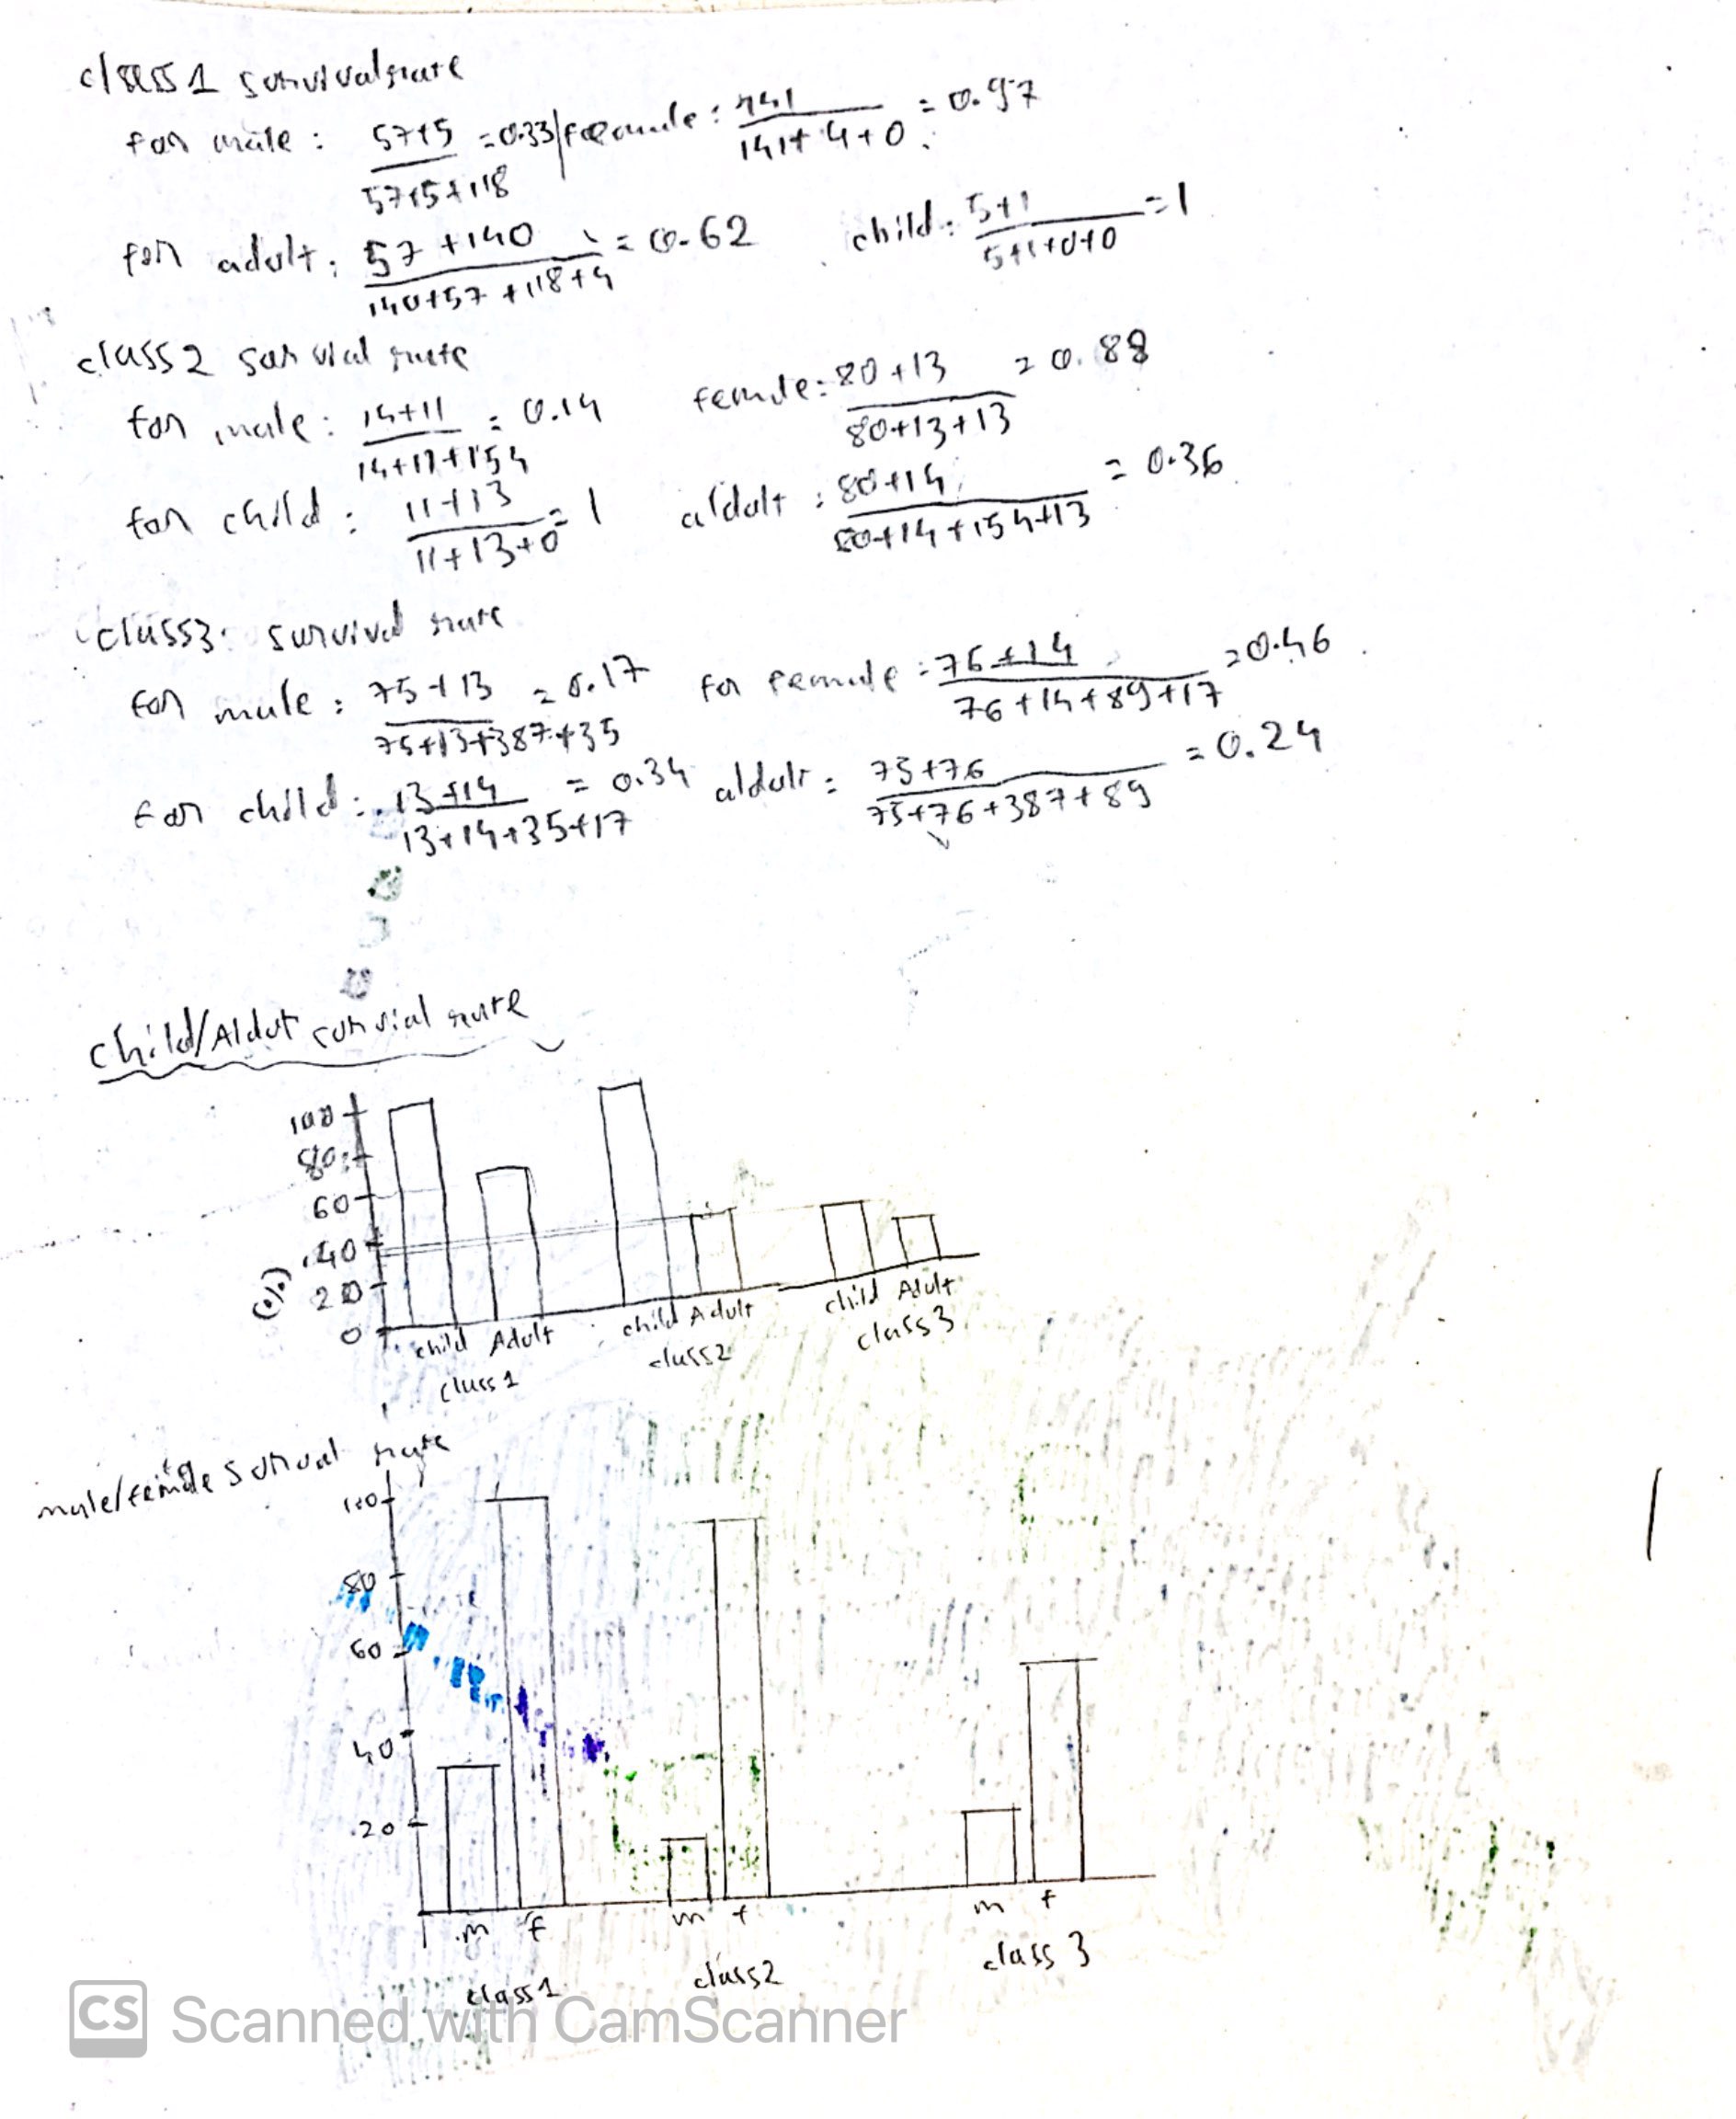 class 1 survival rate
for male : 57+5 / 57+5+118 = 0.33 / female : 141 / 141+4+0 = 0.97
for adult : 57 + 140 / 140+57 + 118+4 = 0.62 child : 5+1 / 5+1+0+0 = 1
class 2 survial rate
for male : 14+11 / 14+11+154 = 0.14 female : 80+13 / 80+13+13 = 0.88
for child : 11+13 / 11+13+0 = 1 aldult : 80+14 / 80+14+154+13 = 0.36
class3 survival rate
for male : 75+13 / 75+13+387+35 = 0.17 for female : 76+14 / 76+14+89+17 = 0.46
for child : 13+14 / 13+14+35+17 = 0.34 aldult : 75+76 / 75+76+387+89 = 0.24
child/Aldut survial rate
100
80
60
40
20
0
(%)
child Adult child Adult child Adult
class 1 class2 class3
male/female survual rate
100
80
60
40
20
m f m f m f
class1 class2 class 3
CS Scanned with CamScanner